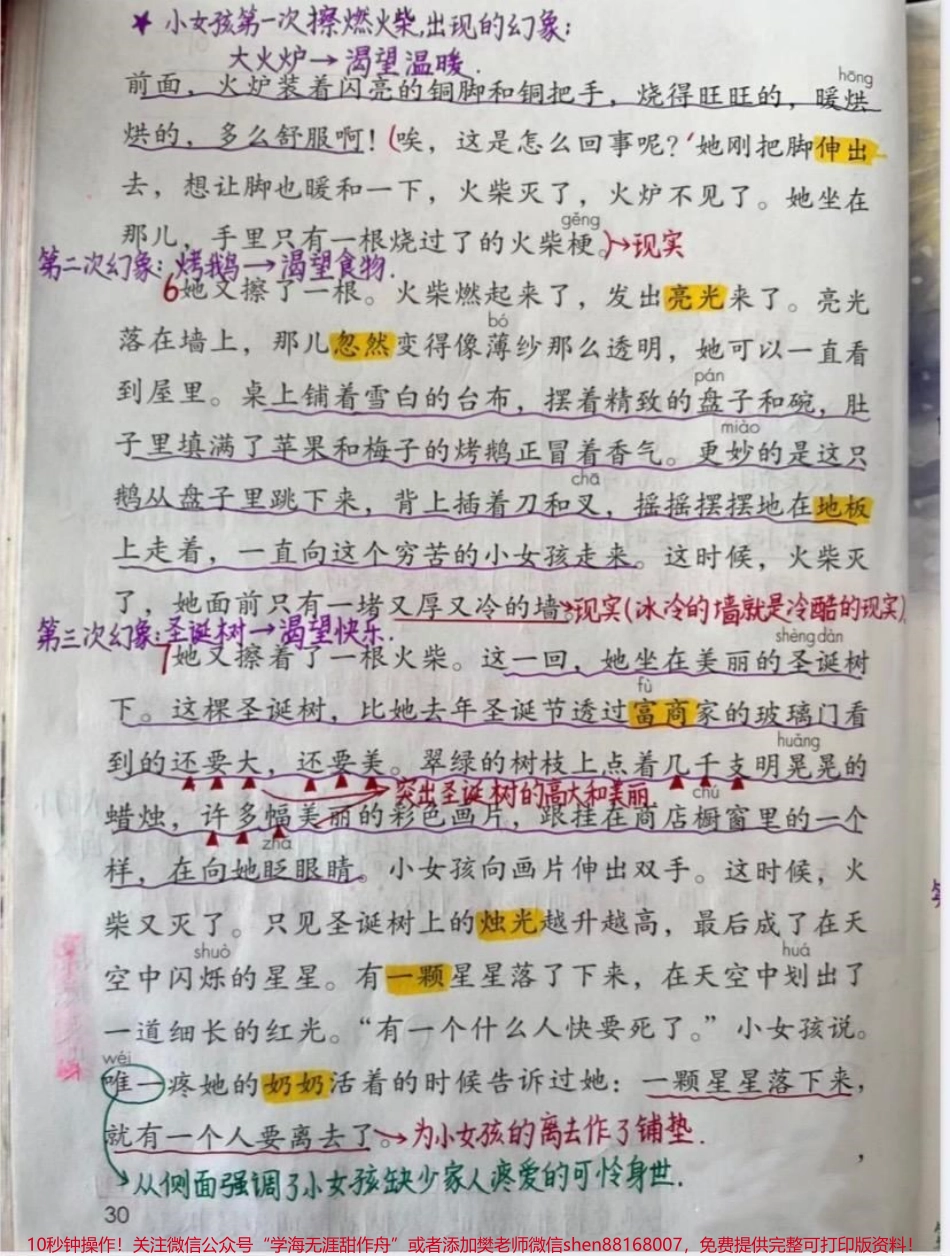 ★ 小女孩第一次擦燃火柴,出现的幻象:
大火炉→渴望温暖.
前面，火炉装着闪亮的铜脚和铜把手，烧得旺旺的，暖烘
hōng
烘的，多么舒服啊！(唉，这是怎么回事呢？她刚把脚伸出
去，想让脚也暖和一下，火柴灭了，火炉不见了。她坐在
gěng
那儿，手里只有一根烧过了的火柴梗。)→现实
第二次幻象: 烤鹅→渴望食物.
6她又擦了一根。火柴燃起来了，发出亮光来了。亮光
bó
落在墙上，那儿忽然变得像薄纱那么透明，她可以一直看
pán
到屋里。桌上铺着雪白的台布，摆着精致的盘子和碗，肚
miào
子里填满了苹果和梅子的烤鹅正冒着香气。更妙的是这只
chā
鹅从盘子里跳下来，背上插着刀和叉，摇摇摆摆地在地板
上走着，一直向这个穷苦的小女孩走来。这时候，火柴灭
了，她面前只有一堵又厚又冷的墙。→现实(冰冷的墙就是冷酷的现实)
第三次幻象:圣诞树→渴望快乐.
shèng dàn
7她又擦着了一根火柴。这一回，她坐在美丽的圣诞树
fù
下。这棵圣诞树，比她去年圣诞节透过富商家的玻璃门看
huǎng
到的还要大，还要美。翠绿的树枝上点着几千支明晃晃的
突出圣诞树的高大和美丽
chú
蜡烛，许多幅美丽的彩色画片，跟挂在商店橱窗里的一个
zhǎ
样，在向她眨眼睛。小女孩向画片伸出双手。这时候，火
柴又灭了。只见圣诞树上的烛光越升越高，最后成了在天
shuò huá
空中闪烁的星星。有一颗星星落了下来，在天空中划出了
一道细长的红光。“有一个什么人快要死了。”小女孩说。
wéi
唯一疼她的奶奶活着的时候告诉过她：一颗星星落下来，
就有一个人要离去了。→为小女孩的离去作了铺垫.
从侧面强调了小女孩缺少家人疼爱的可怜身世.
30
10秒钟操作！关注微信公众号“学海无涯甜作舟”或者添加樊老师微信shen88168007，免费提供完整可打印版资料！